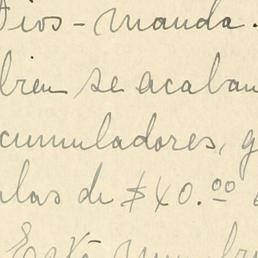 Dios - manda.
bien se acaban
cumuladores, g
las de $40.00
Está